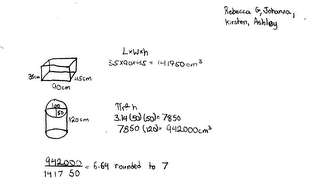 Rebecca G, Johanna,
Kirsten, Ashley
L×W×h
35×90×45 = 141750cm³
35cm
45cm
90cm
100
50
120cm
πr²h
3.14(50)(50) = 7850
7850(120) = 942000cm³
942000
1417 50
= 6.64 rounded to 7